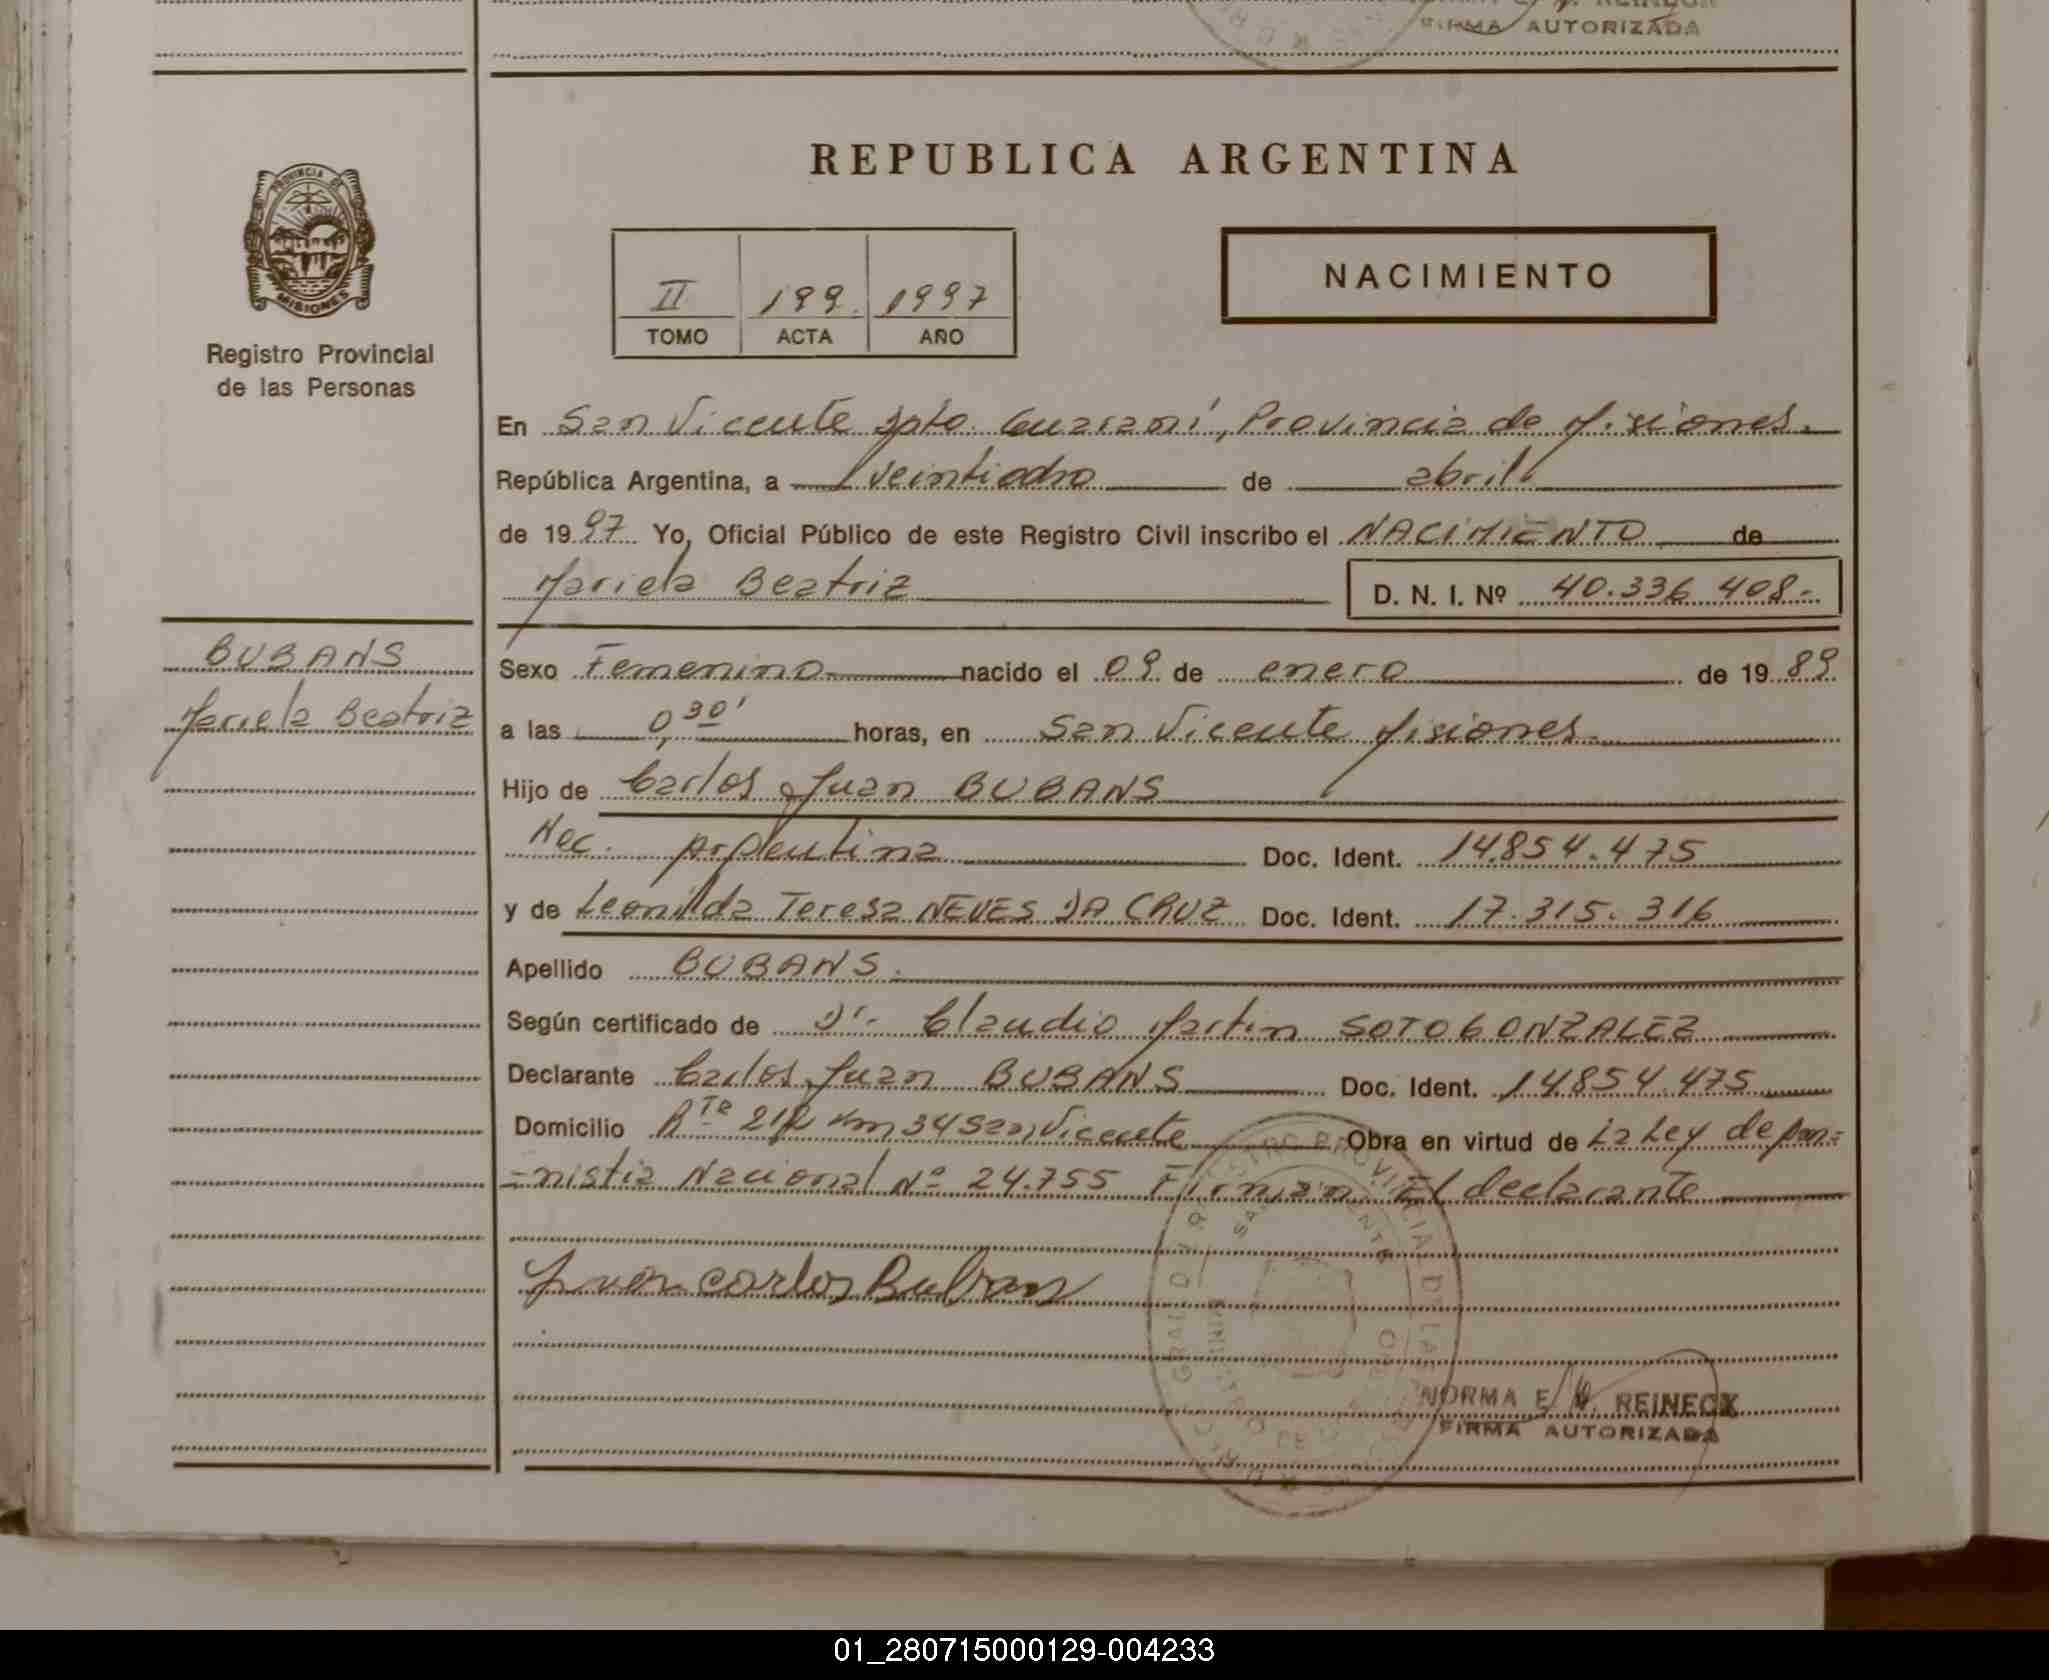 FIRMA AUTORIZADA
PROVINCIA DE
MISIONES
Registro Provincial
de las Personas
BUBANS
Mariela Beatriz
REPUBLICA ARGENTINA
II 199. 1997
TOMO ACTA AÑO
NACIMIENTO
En San Vicente Dpto. Guaraní, Provincia de Misiones.
República Argentina, a veintiocho de abril
de 1997 Yo, Oficial Público de este Registro Civil inscribo el NACIMIENTO de
Mariela Beatriz D. N. I. Nº 40.336.408.-
Sexo Femenino nacido el 09 de enero de 1989
a las 0,30' horas, en San Vicente Misiones.
Hijo de Carlos Juan BUBANS
Nac. Argentina Doc. Ident. 14.854.475
y de Leonilda Teresa NEVES DA CRUZ Doc. Ident. 17.315.316
Apellido BUBANS.
Según certificado de Dr. Claudio Martin SOTO GONZALEZ
Declarante Carlos Juan BUBANS Doc. Ident. 14.854.475
Domicilio Rta 212 Km 34 San Vicente Obra en virtud de La Ley de Am=
=nistia Nacional Nº 24.755 Firman: El declarante
Juan Carlos Bubans
NORMA E. REINECK
FIRMA AUTORIZADA
01_280715000129-004233